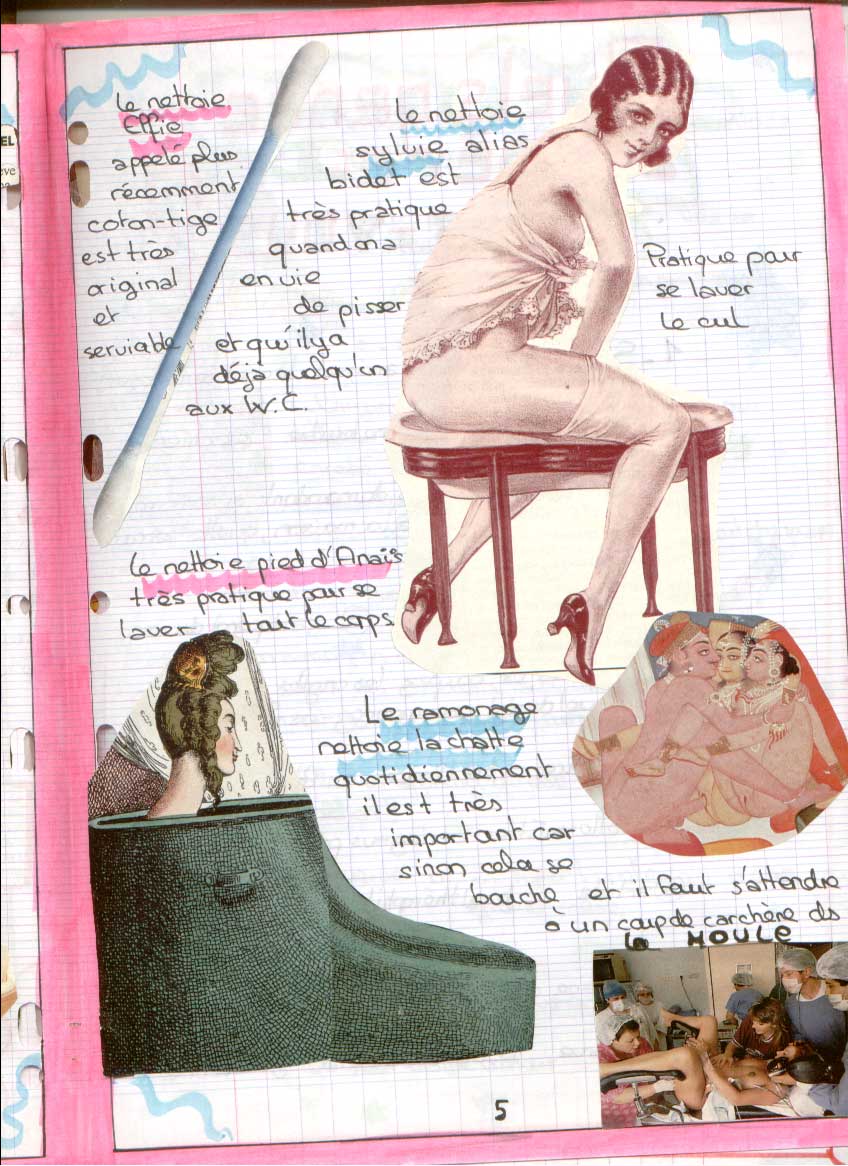 Le nettoie
Effie
appelé plus
récemment
coton-tige
est très
original
et
serviable
Le nettoie
sylvie alias
bidet est
très pratique
quand on a
envie
de pisser
et qu'il y a
déjà quelqu'un
aux W.C.
Pratique pour
se laver
le cul
Le nettoie pied d'Anaïs
très pratique pour se
laver tout le corps
Le ramonage
nettoie la chatte
quotidiennement
il est très
important car
sinon cela se
bouche et il faut s'attendre
à un coup de carchère ds
la MOULE
5